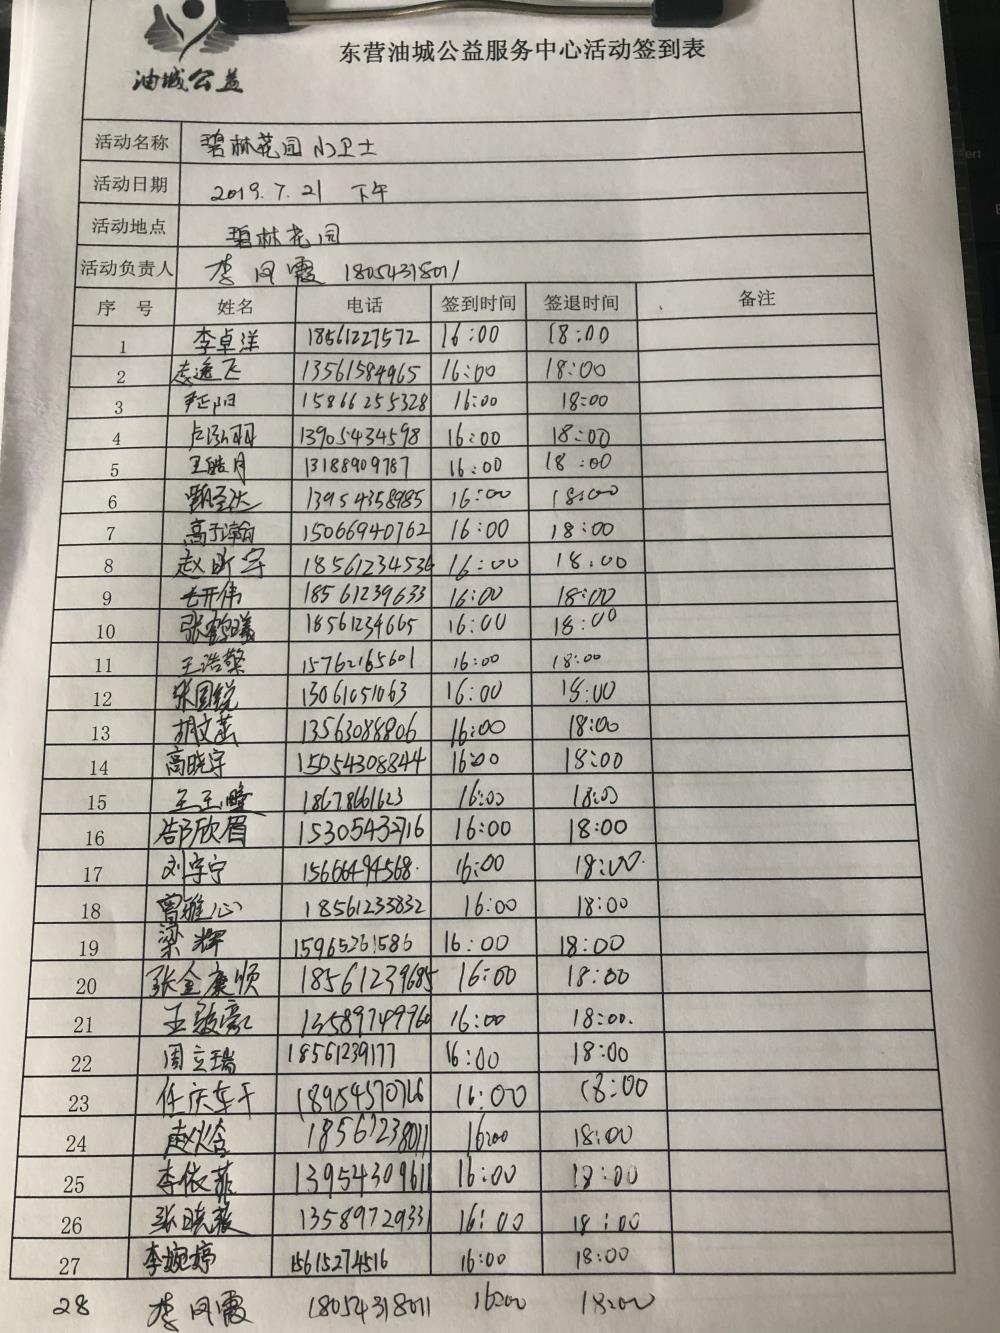 油城公益
东营油城公益服务中心活动签到表
活动名称 碧林花园小卫士
活动日期 2019.7.21 下午
活动地点 碧林花园
活动负责人 李凤霞 18054318011
序 号 姓名 电话 签到时间 签退时间 备注
1 李卓洋 18561227572 16:00 18:00
2 李逸飞 13561584965 16:00 18:00
3 15866255328 16:00 18:00
4 卢泓羽 13905434598 16:00 18:00
5 王皓月 13188909787 16:00 18:00
6 甄圣达 13954358985 16:00 18:00
7 高于瀚 15066940762 16:00 18:00
8 赵昕宇 18561234534 16:00 18:00
9 开伟 18561239633 16:00 18:00
10 张鹤曦 18561234665 16:00 18:00
11 王浩擎 15762165601 16:00 18:00
12 张国锐 13061051063 16:00 18:00
13 胡文菡 13563088806 16:00 18:00
14 高晓宇 15054308844 16:00 18:00
15 王玉瞳 18678661623 16:00 18:00
16 郜欣眉 15305432716 16:00 18:00
17 刘宇宁 15666494568. 16:00 18:00.
18 曾雅心 18561233832 16:00 18:00
19 梁辉 15965261586 16:00 18:00
20 张金康顺 18561239685 16:00 18:00
21 王毅豪 13589749960 16:00 18:00.
22 周立瑞 18561239177 16:00 18:00
23 任庆车干 18954570766 16:00 18:00
24 赵炎含 18561238011 16:00 18:00
25 李依菲 13954309611 16:00 18:00
26 张晓薇 1358972933 16:00 18:00
27 李婉婷 15615274516 16:00 18:00
28 李凤霞 18054318011 16:00 18:00